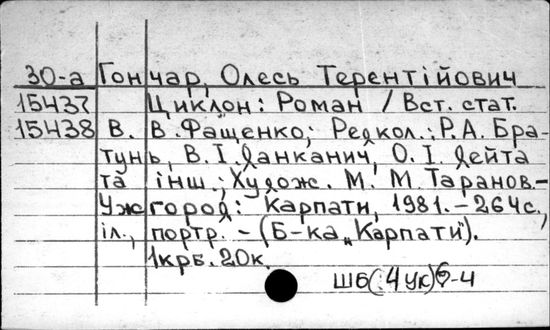 30-а Гончар, Олесь Терентійович
15437 Циклон: Роман / Вст. стат.
15438 В. В. Фащенко; Редкол.: Р. А. Бра-
тунь, В. І. Данканич, О. І. Дейта
та інш.; Худож. М. М. Таранов.-
Ужгород: Карпати, 1981. - 264с.,
іл., портр. - (Б-ка „Карпати").
1крб. 20к.
Шб(4Ук)6-4